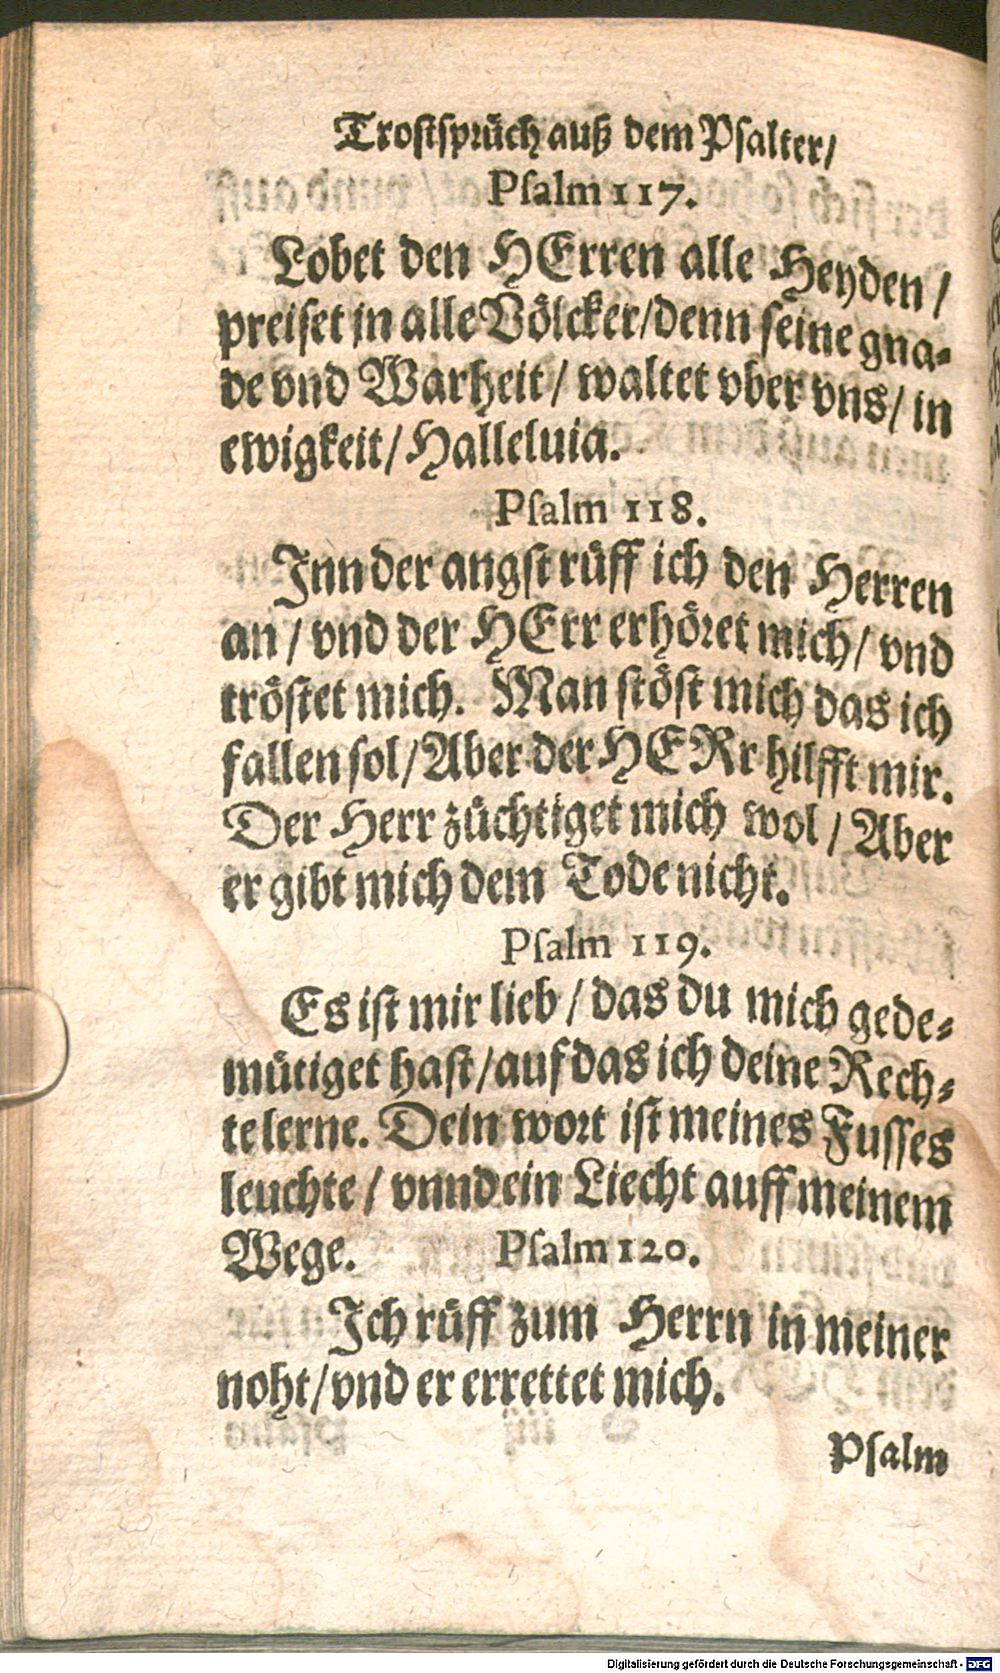 Trostsprüch auß dem Psalter/
Psalm 117.
Lobet den HErren alle Heyden/
preiset jn alle Völcker/denn seine gna-
de vnd Warheit/ waltet vber vns/ in
ewigkeit/ Halleluia.
Psalm 118.
Jnn der angst rüff ich den Herren
an/ vnd der HErr erhöret mich/ vnd
tröstet mich. Man stöst mich das ich
fallen sol/Aber der HERr hilfft mir.
Der Herr züchtiget mich wol/ Aber
er gibt mich dem Tode nicht.
Psalm 119.
Es ist mir lieb/ das du mich gede-
mütiget hast/auf das ich deine Rech-
te lerne. Dein wort ist meines Fusses
leuchte/ vnnd ein Liecht auff meinem
Wege. Psalm 120.
Jch rüff zum Herrn in meiner
noht/vnd er errettet mich.
Psalm
Digitalisierung gefördert durch die Deutsche Forschungsgemeinschaft - DFG